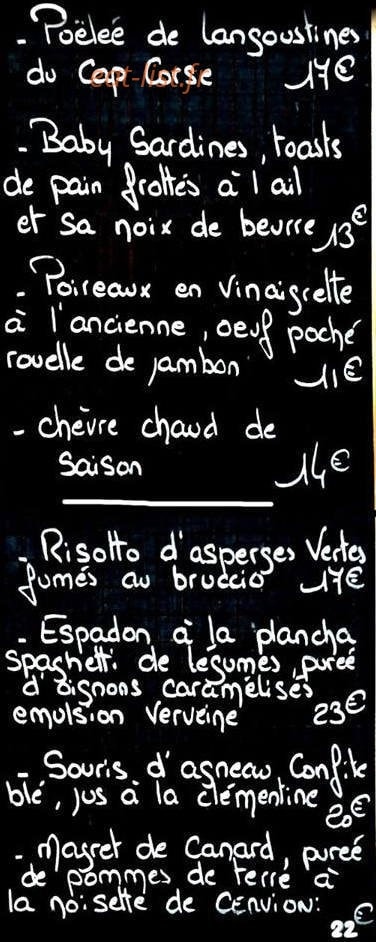 - Poëleé de langoustines
du Cap Corse 17€
eat-list.fr
- Baby Sardines, toasts
de pain frottés à l ail
et sa noix de beurre 13€
- Poireaux en vinaigrette
à l'ancienne, oeuf poché
rouelle de jambon 11€
- chèvre chaud de
saison 14€
- Risotto d'asperges Vertes
fumés au bruccio 17€
- Espadon à la plancha
spaghetti de légumes, pureé
d'oignons caramélisés
emulsion Verveine 23€
- Souris d'agneau Confite
blé, jus à la clémentine 20€
- Magret de Canard, pureé
de pommes de terre à
la noisette de CERVION:
22€